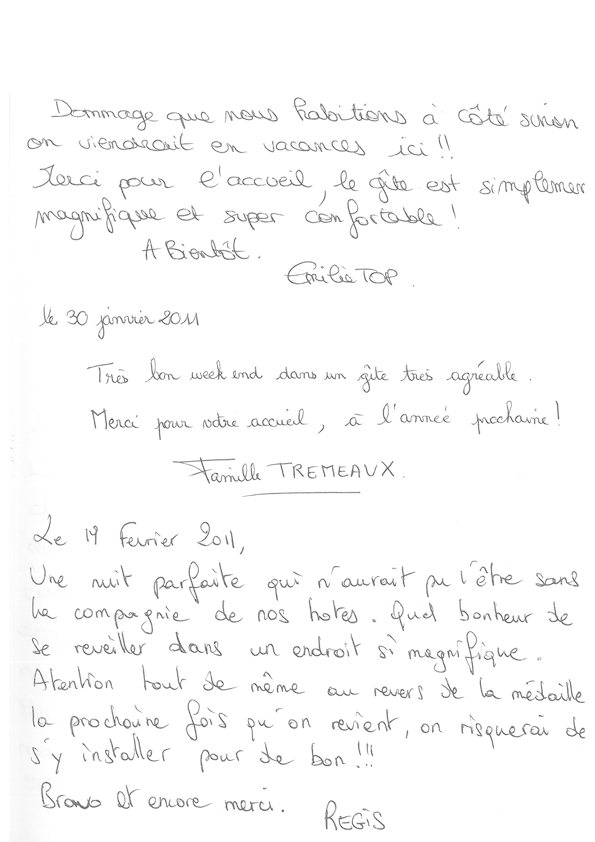 Dommage que nous habitions à côté sinon
on viendrait en vacances ici !!
Merci pour l'accueil, le gîte est simplemen
magnifique et super confortable !
A Bientôt.
Emilie TOP.
le 30 janvier 2011
Très bon week end dans un gîte très agréable.
Merci pour votre accueil, à l'année prochaine !
Famille TREMEAUX.
Le 19 Fevrier 2011,
Une nuit parfaite qui n'aurait pu l'être sans
la compagnie de nos hotes. Quel bonheur de
se reveiller dans un endroit si magnifique.
Atention tout de même au revers de la médaille
la prochaine fois qu'on revient, on risquerai de
s'y installer pour de bon !!!
Bravo et encore merci.
REGIS